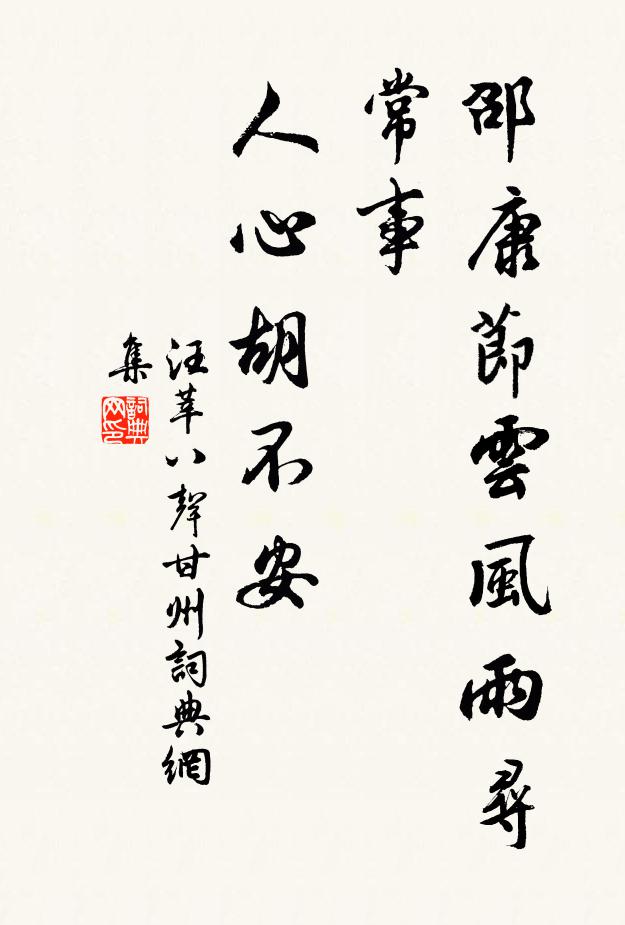 邵康節雲風雨尋
常事
人心胡不安
汪莘八聲甘州詞典網
集
詞典
网印